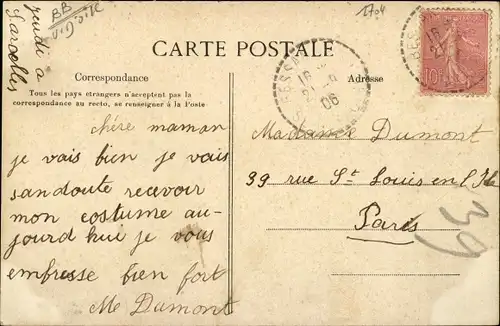 jeudi a
Sarcelles
BB
V. D'OISE
1704
CARTE POSTALE
Correspondance
Tous les pays étrangers n'acceptent pas la
correspondance au recto, se renseigner à la Poste
Adresse
10
06
chère maman
je vais bien je vais
sandoute recevoir
mon costume au-
jourd hui je vous
embrasse bien fort
Me Dumont
Madame Dumont
39 rue St Louis en l'Ile
Paris
39